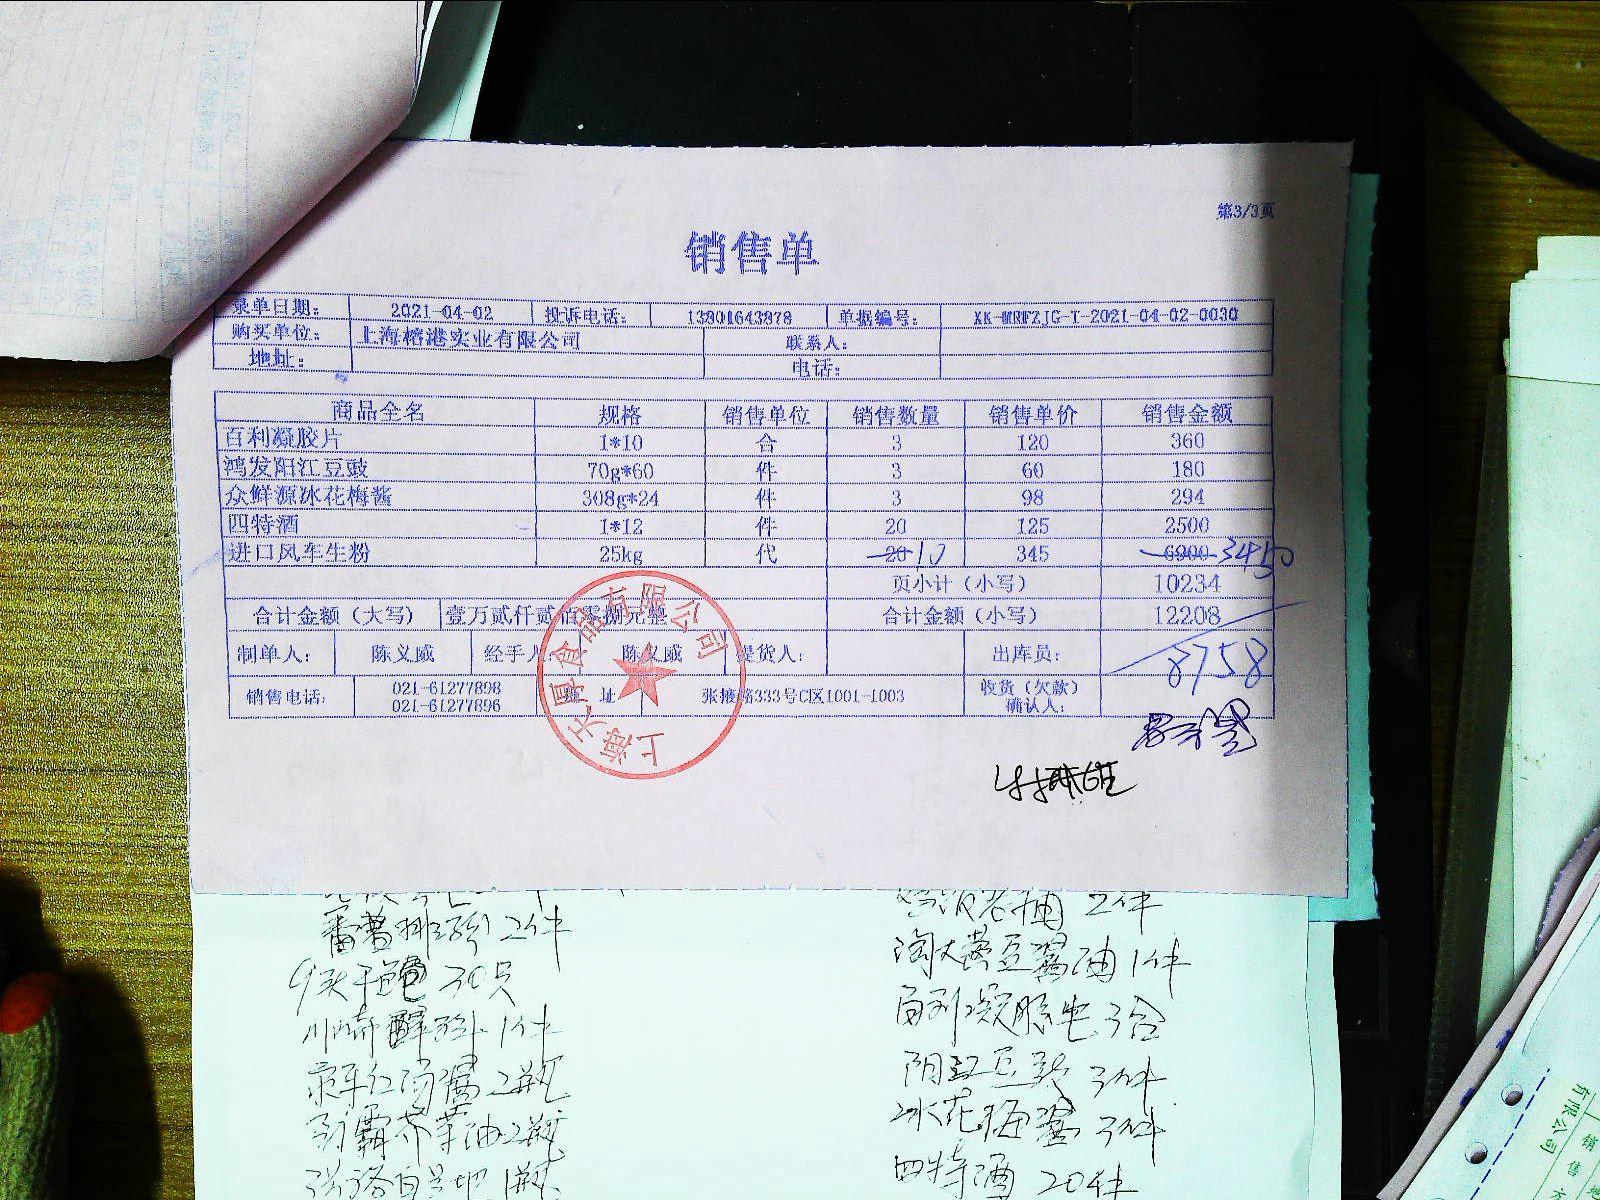 第3/3页
销售单
录单日期： 2021-04-02 投诉电话： 13801643878 单据编号： XK-MRFZJG-T-2021-04-02-0030
购买单位： 上海榕港实业有限公司 联系人：
地址： 电话：
商品全名 规格 销售单位 销售数量 销售单价 销售金额
百利凝胶片 1*10 合 3 120 360
鸿发阳江豆豉 70g*60 件 3 60 180
众鲜源冰花梅酱 308g*24 件 3 98 294
四特酒 1*12 件 20 125 2500
进口风车生粉 25kg 代 20 10 345 6900 3450
页小计（小写） 10234
合计金额（大写） 壹万贰仟贰佰零捌元整 合计金额（小写） 12208
8758
制单人： 陈义威 经手人： 陈义威 提货人： 出库员：
销售电话： 021-61277898 地 址 张掖路333号C区1001-1003 收货（欠款）
021-61277896 确认人：
食品有限公司
上海
番薯排粉 2件 淘大黄豆酱油 1件
9头干鲍 30只 百利凝胶片 3合
1件 阳江豆豉 3件
2瓶 冰花梅酱 3件
芥末油 2瓶 四特酒 20件
有限公司
销售